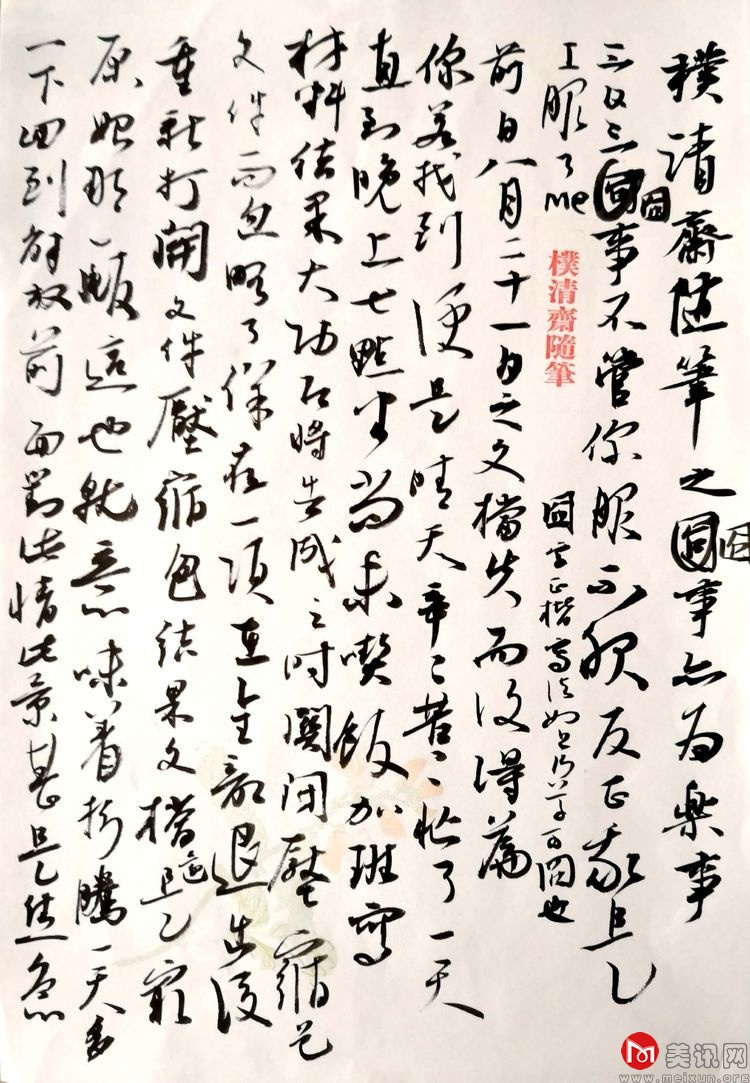 樸清齋隨筆之囧事亦為樂事
囧
三又三囧事不管你服不服反正我是
囧
工服了me
樸清齋隨筆
囧字正楷寫法如上
囧也
前日八月二十一日之文檔失而復得篇
你若找到便是晴天辛辛苦苦忙了一天
直到晚上七點半尚未喫飯加班寫
材料結果大功即將告成之时關闭壓縮包
文件而忽略了保存一項直全部退出後
重新打開文件壓縮包結果文檔還是最
原始那一版這也就意味着折騰一天多
一下回到解放前面對此情此景甚是焦急
美讯网
www.meixun.org